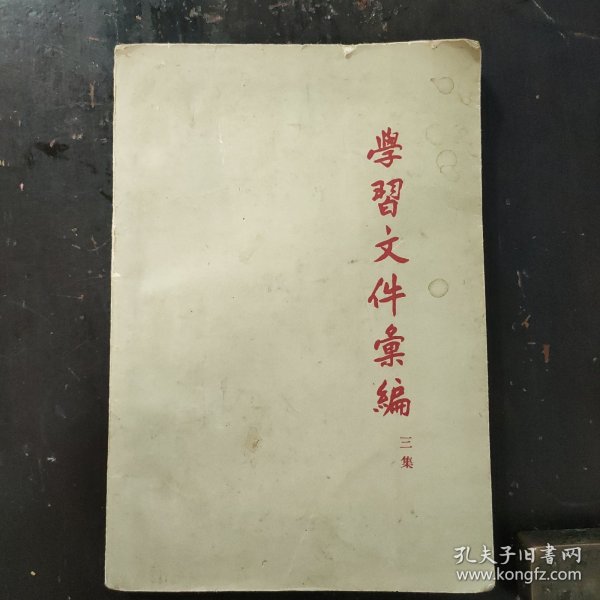 學習文件彙編
三集
孔夫子旧書网
www.kongfz.com